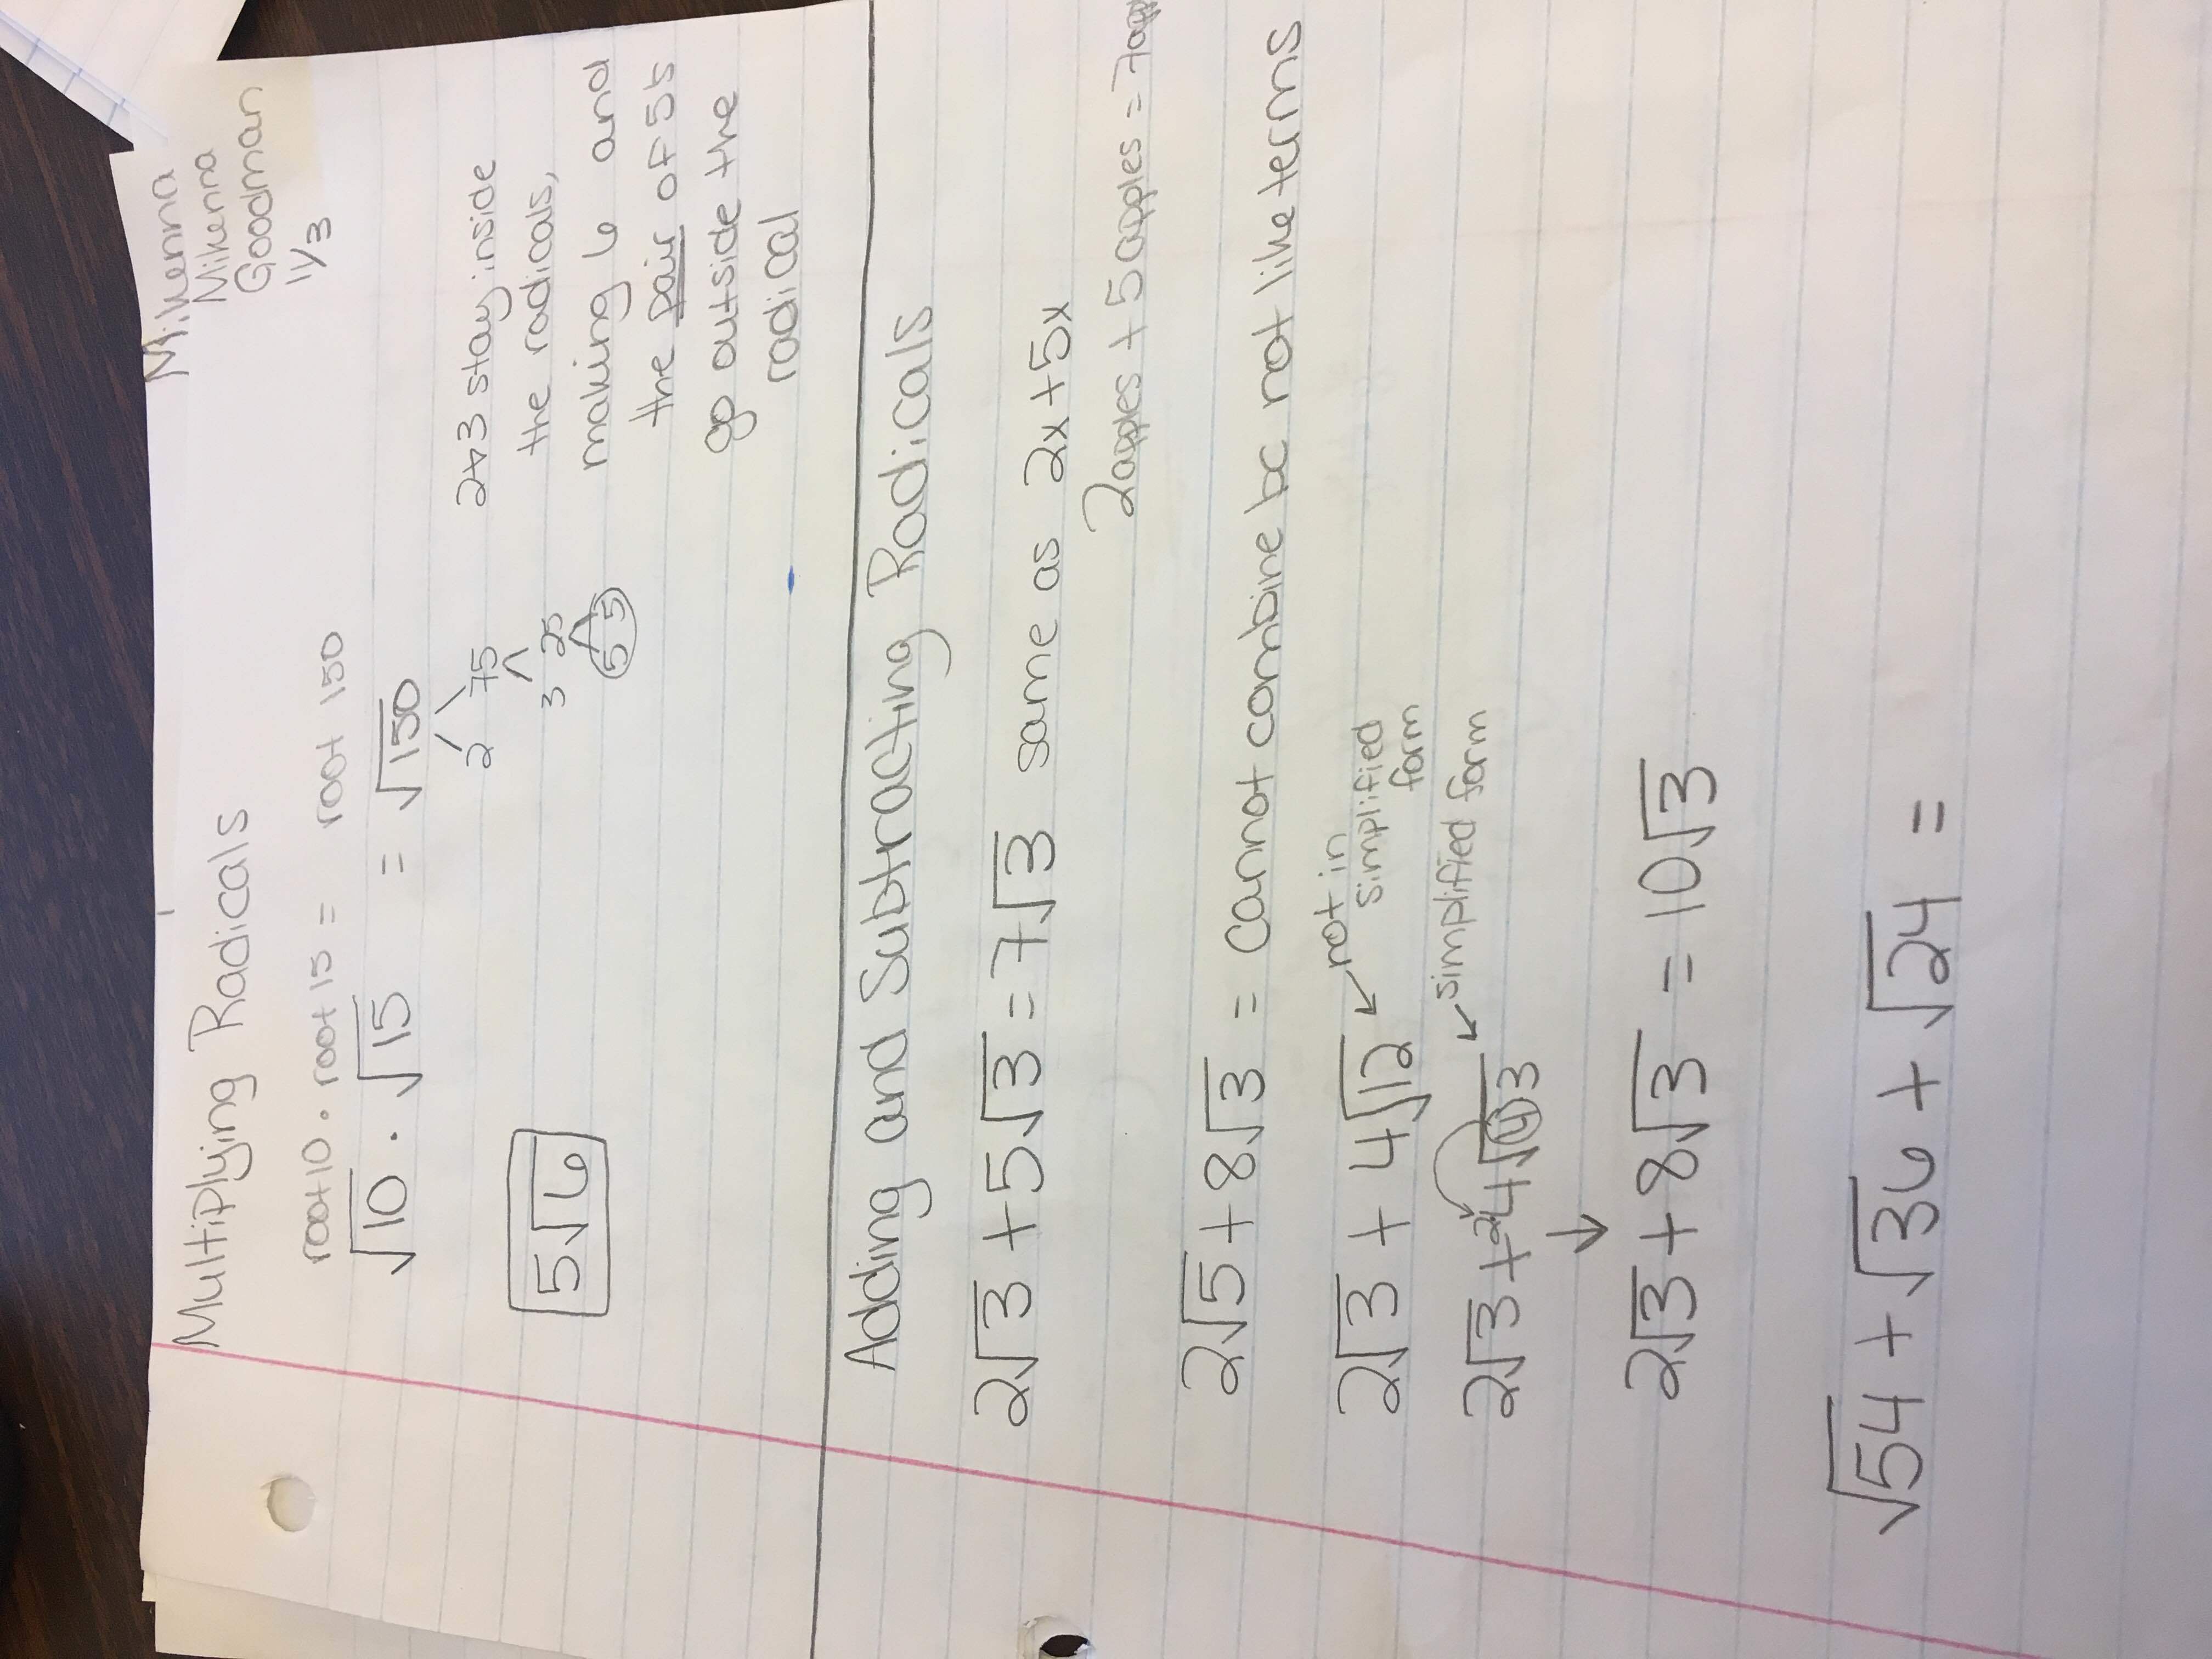 Mikenna
Mikenna
Goodman
11/3
Multiplying Radicals
root 10 · root 15 = root 150
√10 · √15 = √150
2 75
3 25
5 5
5√6
2+3 stay inside
the radicals,
making 6 and
the pair of 5s
go outside the
radical
Adding and Subtracting Radicals
2√3 + 5√3 = 7√3 same as 2x + 5x
2apples + 5apples = 7app
2√5 + 8√3 = cannot combine bc not like terms
2√3 + 4√12 ← not in
simplified
form
2√3 + 2·4√4·3 ← simplified form
↓
2√3 + 8√3 = 10√3
√54 + √36 + √24 =